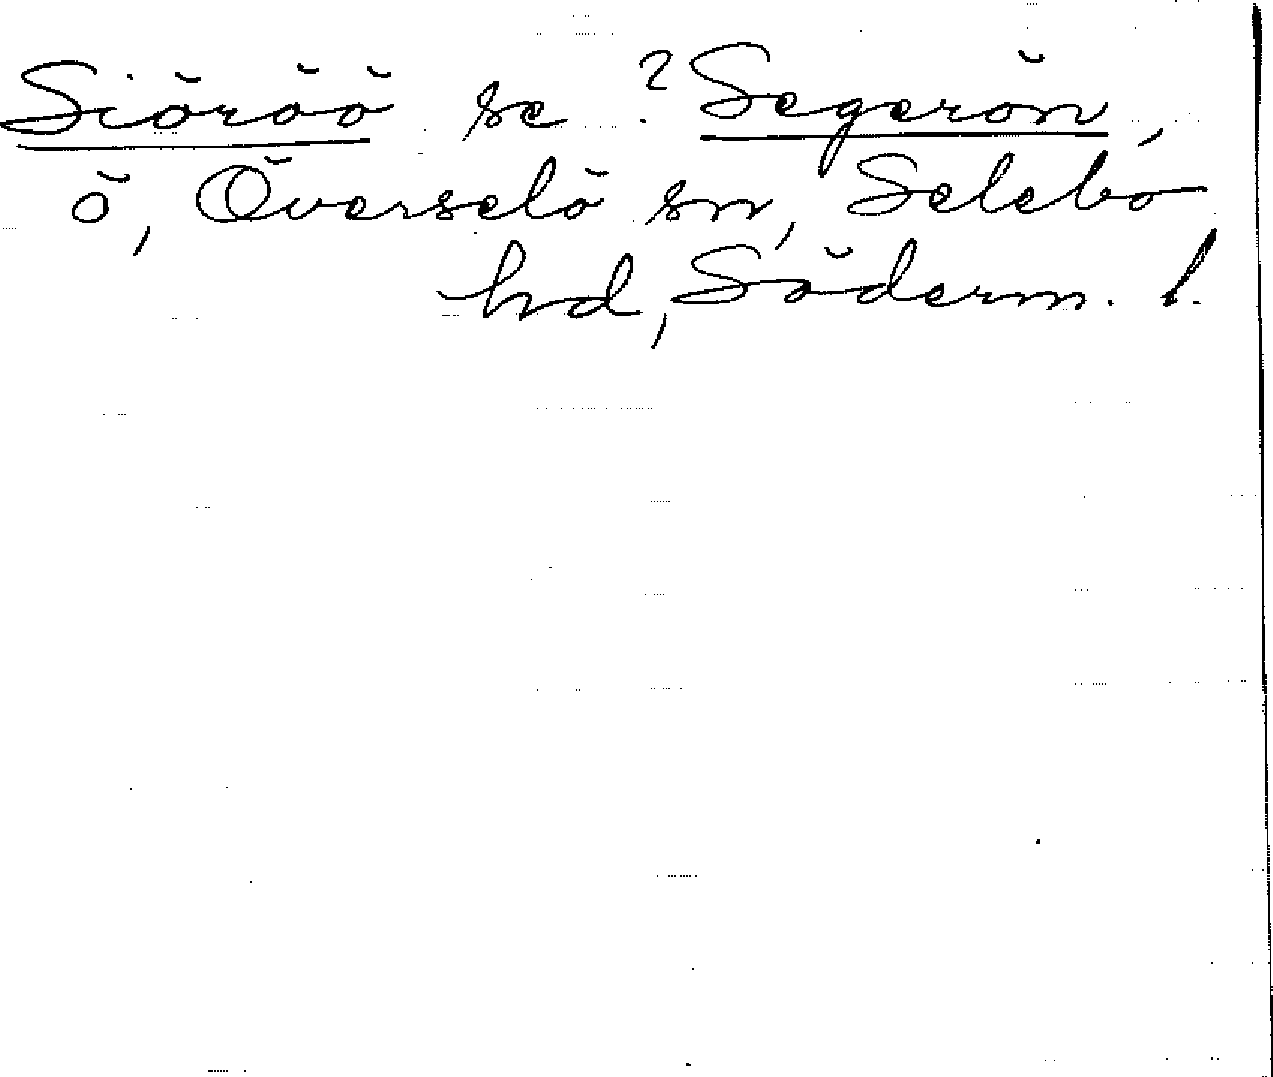 Siöröö se ? Segerön,
ö, Överselö sn, Selebo
hd, Söderm. l.